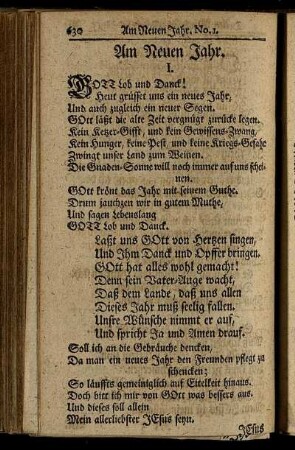 630 Am Neuen Jahr. No. 1.
Am Neuen Jahr.
I.
GOTT Lob und Danck!
Heut grüsset uns ein neues Jahr,
Und auch zugleich ein neuer Segen.
GOtt läßt die alte Zeit vergnügt zurücke legen.
Kein Ketzer-Gifft, und kein Gewissens-Zwang,
Kein Hunger, keine Pest, und keine Kriegs-Gefahr
Zwingt unser Land zum Weinen.
Die Gnaden-Sonne will noch immer auf uns schei-
nen.
GOtt krönt das Jahr mit seinem Guthe.
Drum jauchzen wir in gutem Muthe,
Und sagen Lebenslang
GOTT Lob und Danck.
Laßt uns GOtt von Hertzen singen,
Und Ihm Danck und Opffer bringen.
GOtt hat alles wohl gemacht!
Denn sein Vater-Auge wacht,
Daß dem Lande, daß uns allen
Dieses Jahr muß seelig fallen.
Unsre Wünsche nimmt er auf,
Und spricht Ja und Amen drauf.
Soll ich an die Gebräuche dencken,
Da man ein neues Jahr den Freunden pflegt zu
schencken;
So läuffts gemeiniglich auf Eitelkeit hinaus.
Doch bitt ich mir von GOtt was bessers aus.
Und dieses soll allein
Mein allerliebster JEsus seyn.
JEsus